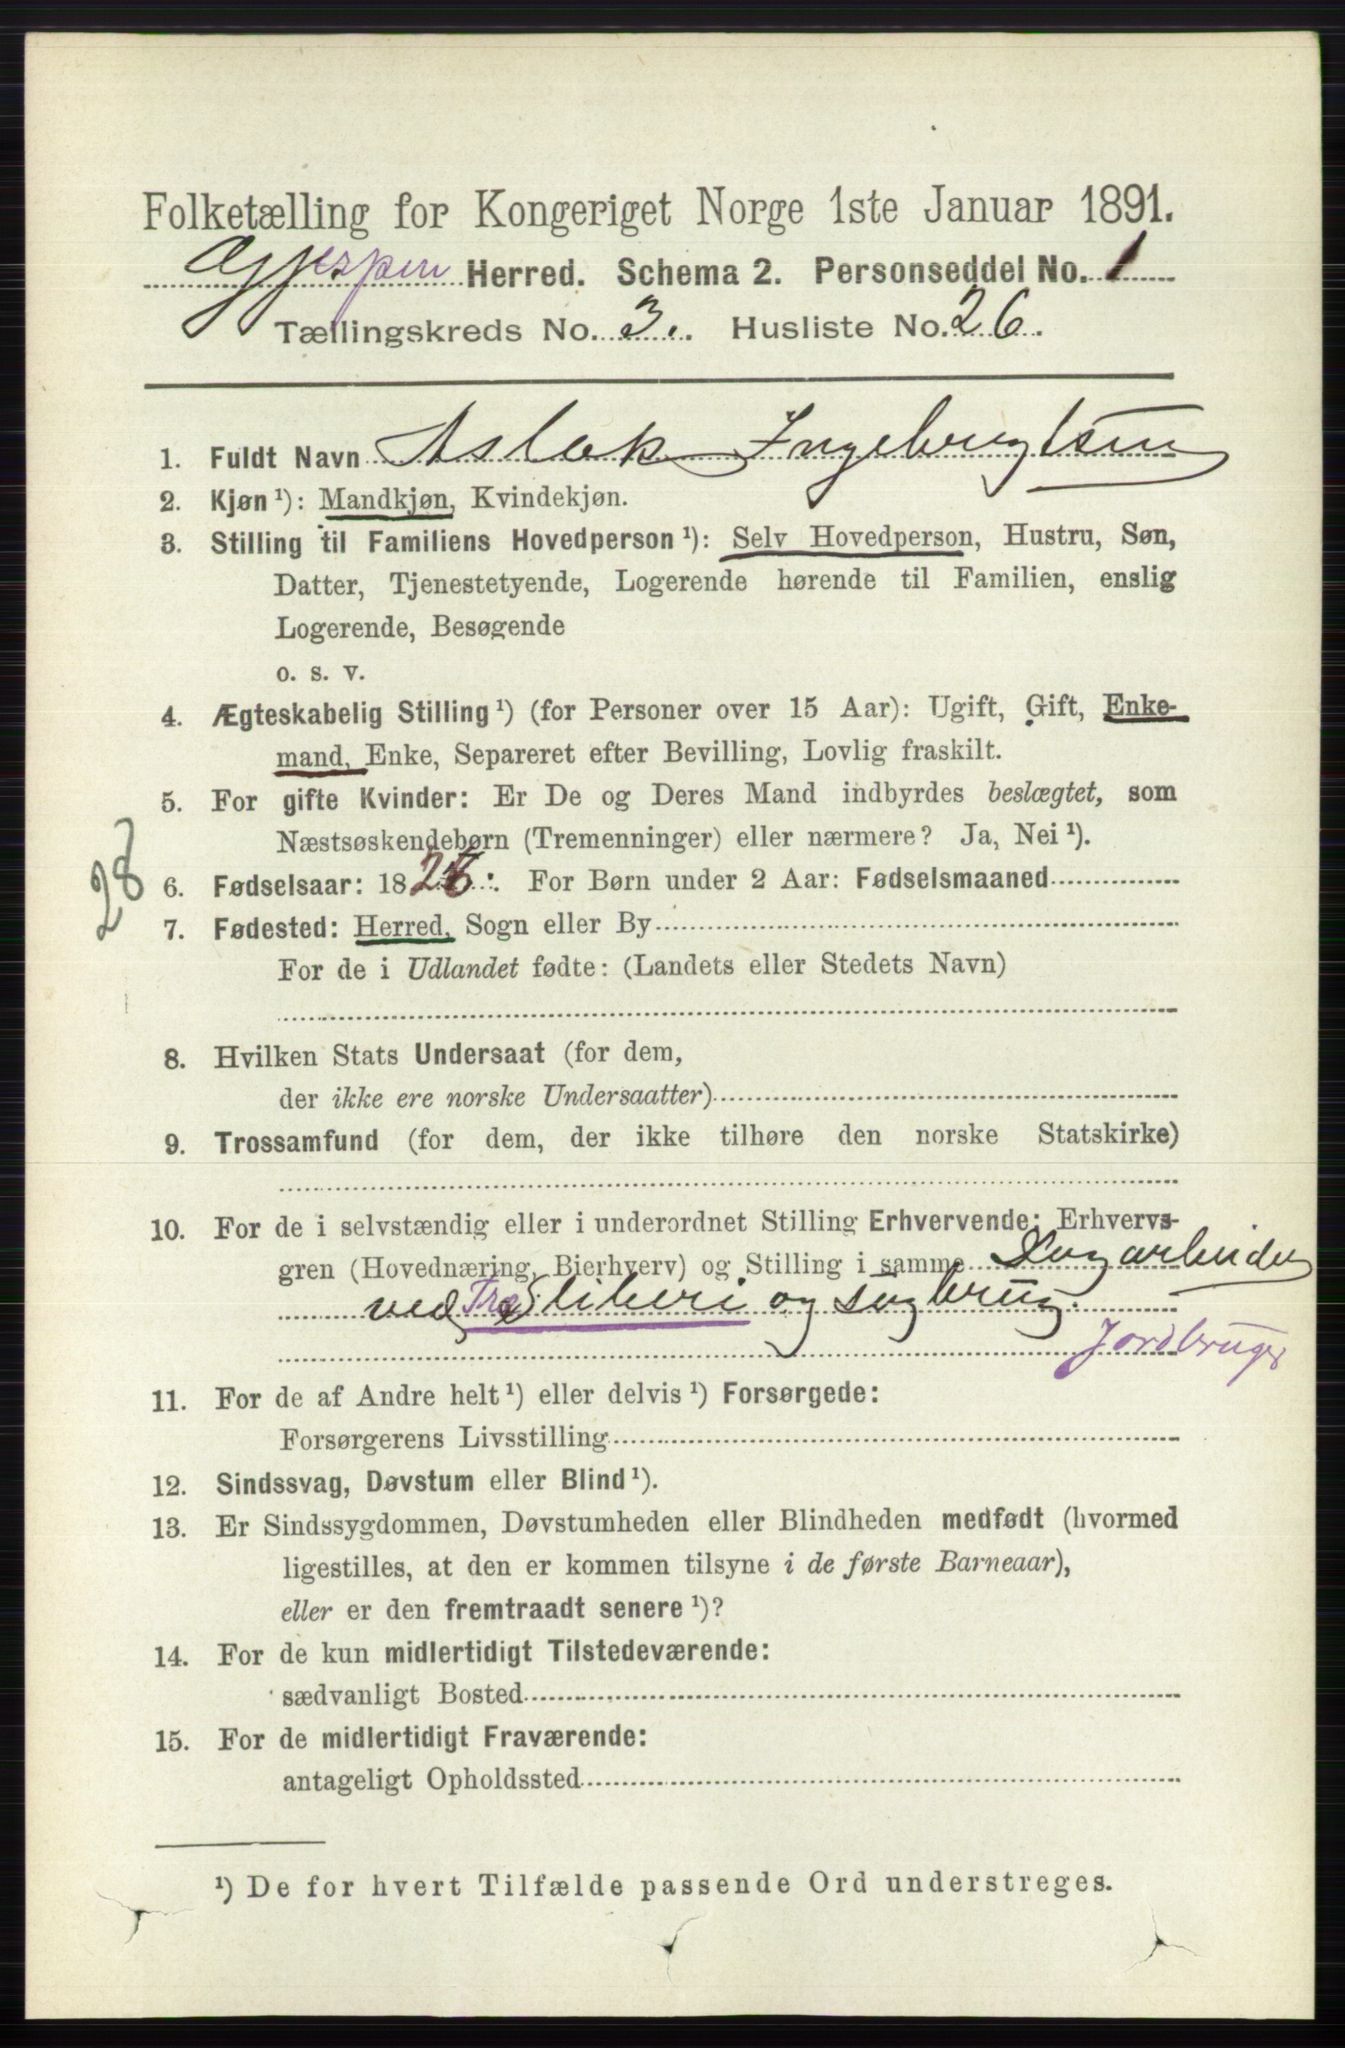 Folketælling for Kongeriget Norge 1ste Januar 1891.
Gjerpen Herred. Schema 2. Personseddel No. 1
Tællingskreds No. 3. Husliste No. 26.
1. Fuldt Navn Aslak Ingebrugtsen
2. Kjøn ¹): Mandkjøn, Kvindekjøn.
3. Stilling til Familiens Hovedperson ¹): Selv Hovedperson, Hustru, Søn,
Datter, Tjenestetyende, Logerende hørende til Familien, enslig
Logerende, Besøgende
o. s. v.
4. Ægteskabelig Stilling ¹) (for Personer over 15 Aar): Ugift, Gift, Enke-
mand, Enke, Separeret efter Bevilling, Lovlig fraskilt.
5. For gifte Kvinder: Er De og Deres Mand indbyrdes beslægtet, som
Næstsøskendebørn (Tremenninger) eller nærmere? Ja, Nei ¹).
28
6. Fødselsaar: 182 . For Børn under 2 Aar: Fødselsmaaned
7. Fødested: Herred, Sogn eller By
For de i Udlandet fødte: (Landets eller Stedets Navn)
8. Hvilken Stats Undersaat (for dem,
der ikke ere norske Undersaatter)
9. Trossamfund (for dem, der ikke tilhøre den norske Statskirke)
10. For de i selvstændig eller i underordnet Stilling Erhvervende: Erhvervs-
gren (Hovednæring, Bierhverv) og Stilling i samme
ved Træsliberi og sagbrug.
Jordbruger
11. For de af Andre helt ¹) eller delvis ¹) Forsørgede:
Forsørgerens Livsstilling
12. Sindssvag, Døvstum eller Blind ¹).
13. Er Sindssygdommen, Døvstumheden eller Blindheden medfødt (hvormed
ligestilles, at den er kommen tilsyne i de første Barneaar),
eller er den fremtraadt senere ¹)?
14. For de kun midlertidigt Tilstedeværende:
sædvanligt Bosted
15. For de midlertidigt Fraværende:
antageligt Opholdssted
¹) De for hvert Tilfælde passende Ord understreges.